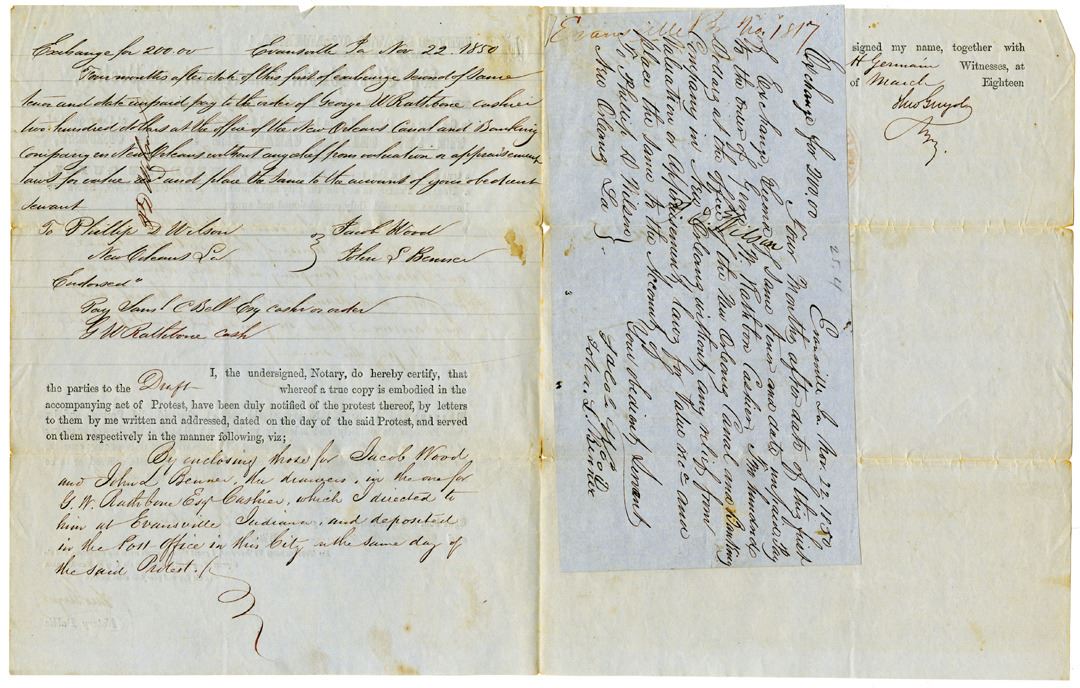 Exchange for 200.00 Evansville Ia Nov. 22. 1850
Four months after date of this first of exchange second of same
tenor and date unpaid pay to the order of George W Rathbone cashier
two hundred dollars at the office of the New Orleans Canal and Banking
Company in New Orleans without any relief from valuation or appraisement
laws for value and place the same to the account of your obedient
servant
To Phillip D Wilson Jacob Wood
New Orleans La John S Benner
Endorsed"
Pay Saml C Bell Esq cash or order
G W Rathbone cash
I, the undersigned, Notary, do hereby certify, that
the parties to the Draft whereof a true copy is embodied in the
accompanying act of Protest, have been duly notified of the protest thereof, by letters
to them by me written and addressed, dated on the day of the said Protest, and served
on them respectively in the manner following, viz;
By enclosing those for Jacob Wood
and John Benner, the drawers, in the one for
G. W. Rathbone Esq Cashier, which I directed to
him at Evansville Indiana, and deposited
in the Post Office in this City on the same day of
the said Protest.
Evansville No 1817
Exchange for 200,00 Evansville Ia. Nov. 22. 1850
Four Months after date of this first
of Exchange Second of Same tenor and date unpaid Pay
to the order of George W. Rathbon Cashier Two hundred
at the office of the New Orleans Canal and Banking
Company in New Orleans without any relief from
Valuation or Appraisement laws for Value rec and
place the same to the Account of
Your obedient Servant
To Phillip D Wilson
New Orleans La
Jacob Wood
John S Benner
Wilson
25.4
signed my name, together with
H Germain Witnesses, at
of March Eighteen